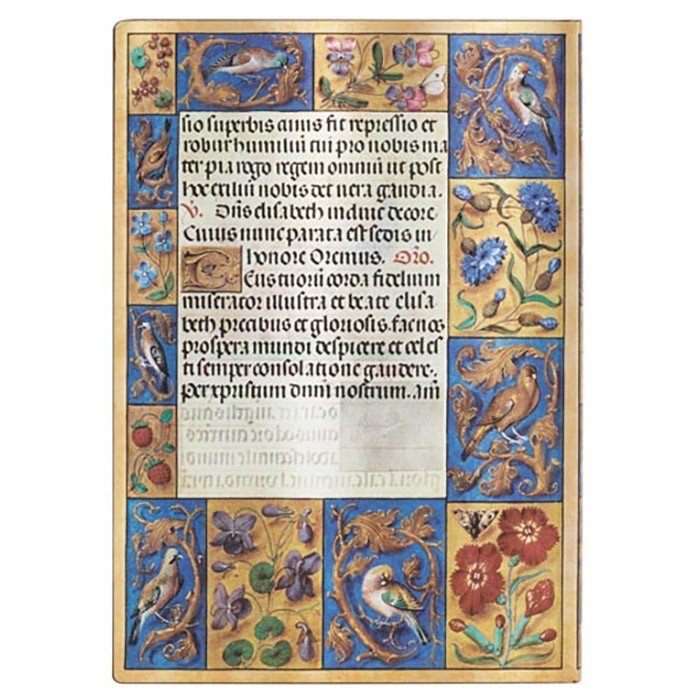 sio superbis cuius fit repressio et
robur humilium tui pro nobis ma
ter pia rogo regem omnium ut post
hoc exilium nobis det vera gaudia.
V. Dn̄s elisabeth induit decore
Cuius nunc parata est sedis in
honore Oremus. Oro.
Deus tuorum corda fidelium
miserator illustra et beate elisa
beth precibus et gloriosis. fac nos
prospera mundi despicere et celes
ti semper consolatione gaudere.
per xpristum dnm nostrum. am